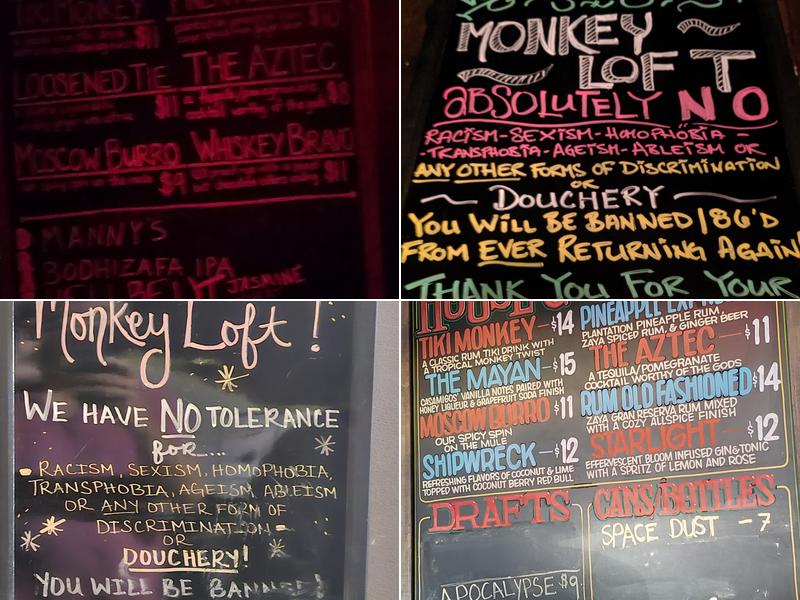 TIKI MONKEY
$11 $10
LOOSENED TIE THE AZTEC
$11 $8
MOSCOW BURRO WHISKEY BRAVO
$9 $11
MANNY'S
BODHIZAFA IPA
JASMINE
MONKEY
LOFT
ABSOLUTELY NO
RACISM-SEXISM-HOMOPHOBIA-
-TRANSPHOBIA-AGEISM-ABLEISM OR
ANY OTHER FORMS OF DISCRIMINATION
OR
DOUCHERY
YOU WILL BE BANNED/86'D
FROM EVER RETURNING AGAIN
THANK YOU FOR YOUR
Monkey Loft!
WE HAVE NO TOLERANCE
for...
RACISM, SEXISM, HOMOPHOBIA,
TRANSPHOBIA, AGEISM, ABLEISM
OR ANY OTHER FORM OF
DISCRIMINATION
OR
DOUCHERY!
YOU WILL BE BANNED!
HOUSE
TIKI MONKEY -$14
A CLASSIC RUM TIKI DRINK WITH
A TROPICAL MONKEY TWIST
THE MAYAN -$15
CASAMIGOS' VANILLA NOTES PAIRED WITH
HONEY LIQUEUR & GRAPEFRUIT SODA FINISH
MOSCOW BURRO $11
OUR SPICY SPIN
ON THE MULE
SHIPWRECK -$12
REFRESHING FLAVORS OF COCONUT & LIME
TOPPED WITH COCONUT BERRY RED BULL
PINEAPPLE
PLANTATION PINEAPPLE RUM,
ZAYA SPICED RUM, & GINGER BEER
THE AZTEC -$11
A TEQUILA/POMEGRANATE
COCKTAIL WORTHY OF THE GODS
RUM OLD FASHIONED $14
ZAYA GRAN RESERVA RUM MIXED
WITH A COZY ALLSPICE FINISH
STARLIGHT -$12
EFFERVESCENT BLOOM INFUSED GIN & TONIC
WITH A SPRITZ OF LEMON AND ROSE
DRAFTS
APOCALYPSE $9
CANS/BOTTLES
SPACE DUST -7